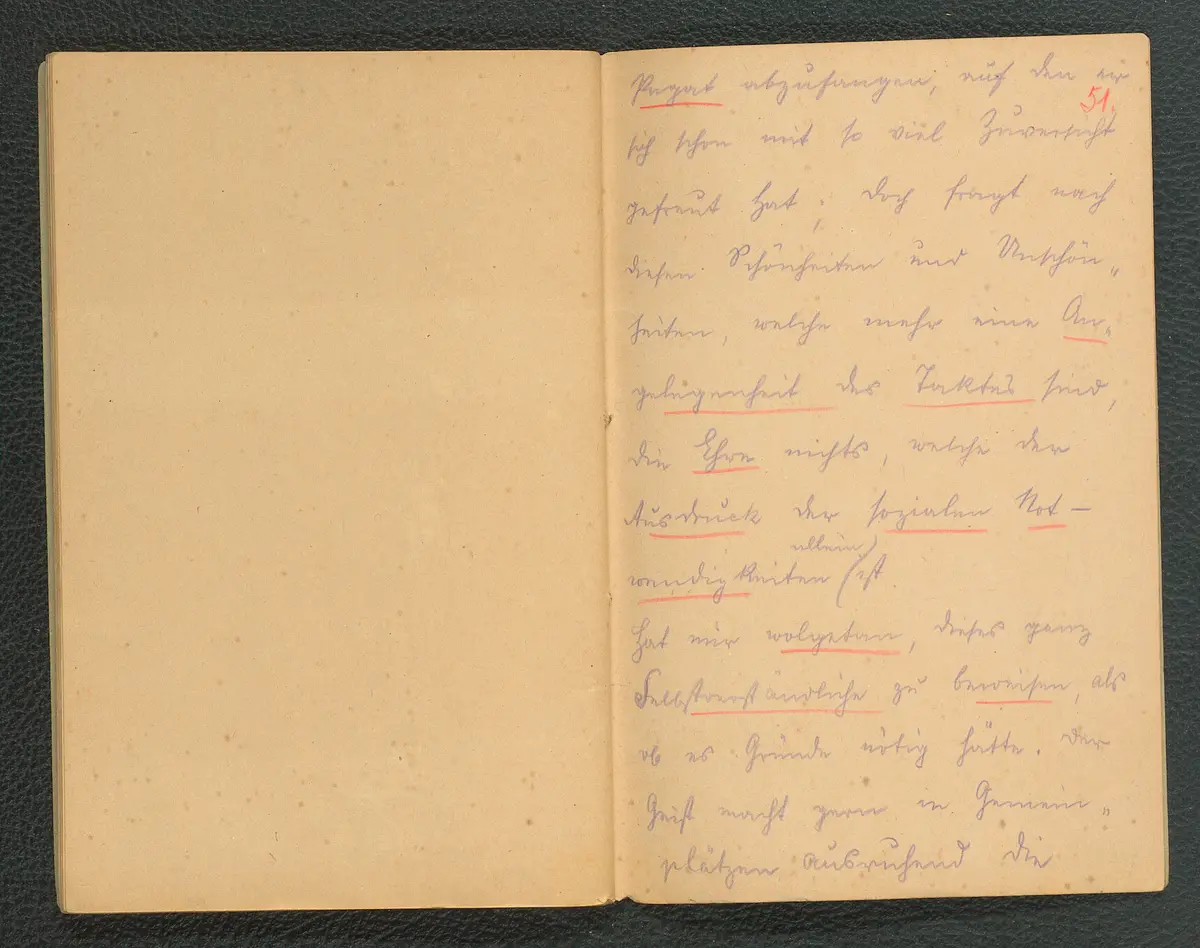 Pagat abzufangen, auf den er
51.
sich schon mit so viel Zuversicht
gefreut hat; doch fragt nach
diesen Schönheiten und Unschön„
heiten, welche mehr eine An„
gelegenheit des Taktes sind,
die Ehre nichts, welche der
Ausdruck der sozialen Not-
allein)
wendigkeiten (ist.
Hat mir wolgetan, dieses ganz
Selbstverständliche zu beweisen, als
ob es Gründe nötig hätte. Der
Geist macht gern in Gemein„
plätzen ausruhend die